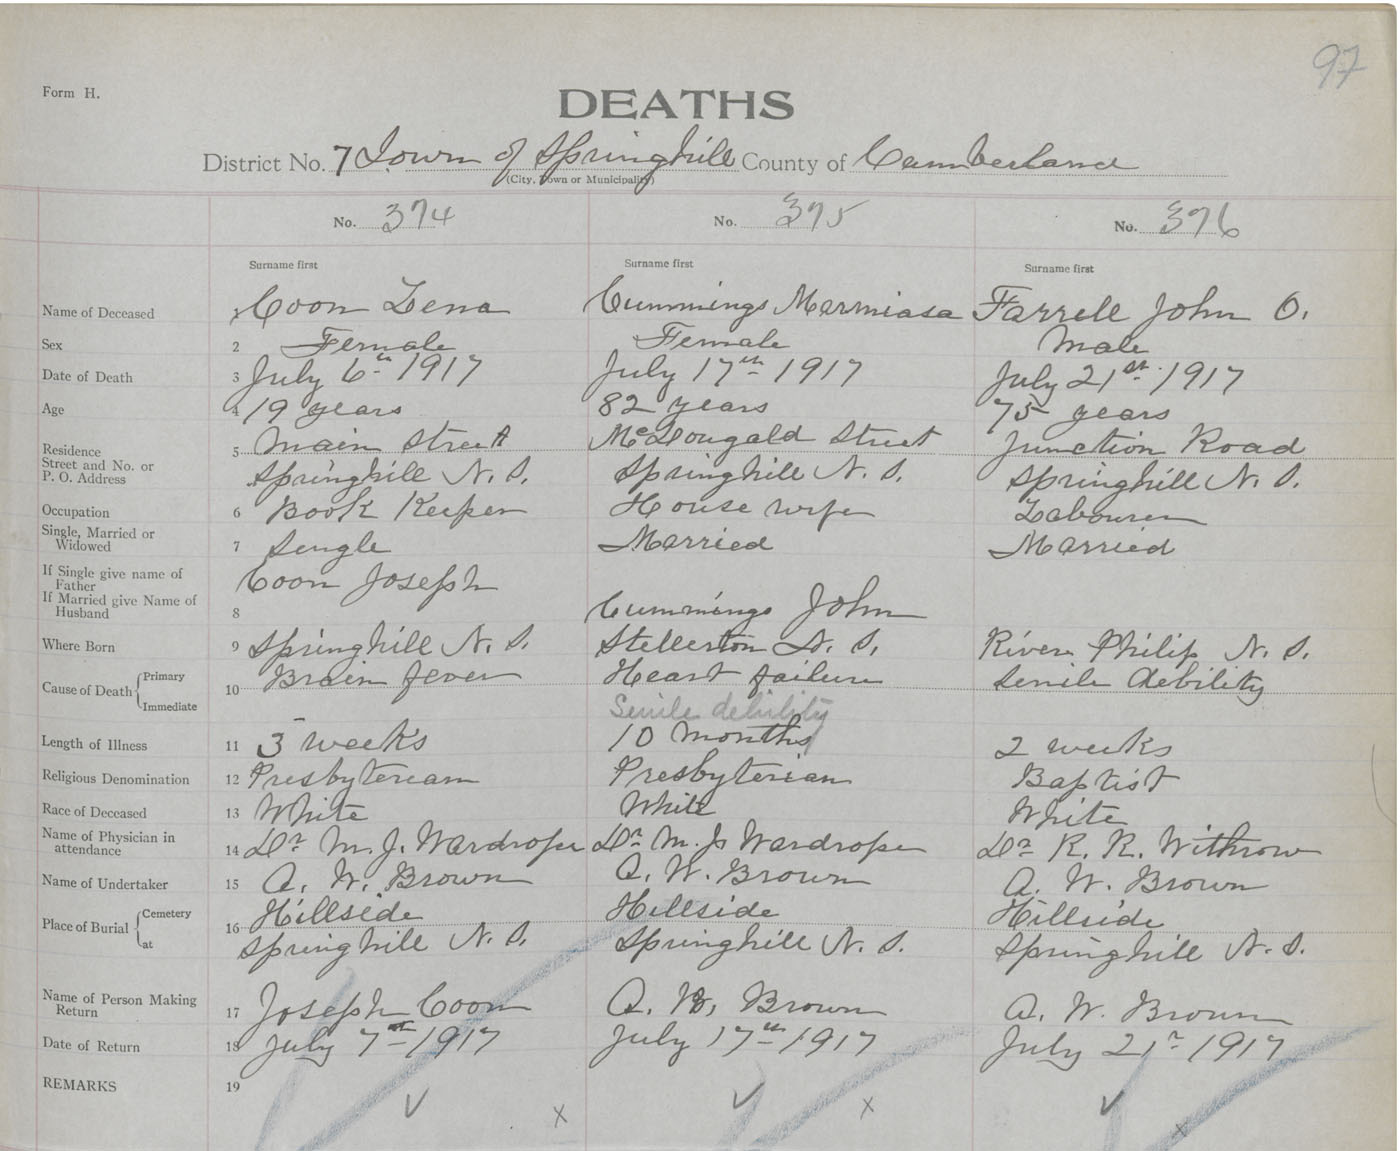 97
Form H.
DEATHS
District No. 7 Town of Springhill County of Cumberland
(City, Town or Municipality)
No. 374 No. 375 No. 376
Surname first Surname first Surname first
Name of Deceased 1 Coon Lena Cummings Marmiasa Farrell John O.
Sex 2 Female Female Male
Date of Death 3 July 6th 1917 July 17th 1917 July 21st 1917
Age 4 19 years 82 years 75 years
Residence 5 Main Street McDougald Street Junction Road
Street and No. or
P. O. Address Springhill N. S. Springhill N. S. Springhill N. S.
Occupation 6 Book Keeper House wife Labourer
Single, Married or
Widowed 7 Single Married Married
If Single give name of
Father Coon Joseph
If Married give Name of
Husband 8 Cummings John
Where Born 9 Springhill N. S. Stellerton N. S. River Philip N. S.
Cause of Death Primary 10 Brain fever Heart failure Senile debility
Immediate Senile debility
Length of Illness 11 3 weeks 10 months 2 weeks
Religious Denomination 12 Presbyterian Presbyterian Baptist
Race of Deceased 13 White White White
Name of Physician in
attendance 14 Dr M. J. Wardrope Dr M. J. Wardrope Dr R. R. Withrow
Name of Undertaker 15 A. W. Brown A. W. Brown A. W. Brown
Place of Burial Cemetery 16 Hillside Hillside Hillside
at Springhill N. S. Springhill N. S. Springhill N. S.
Name of Person Making
Return 17 Joseph Coon A. W. Brown A. W. Brown
Date of Return 18 July 7th 1917 July 17th 1917 July 21st 1917
REMARKS 19